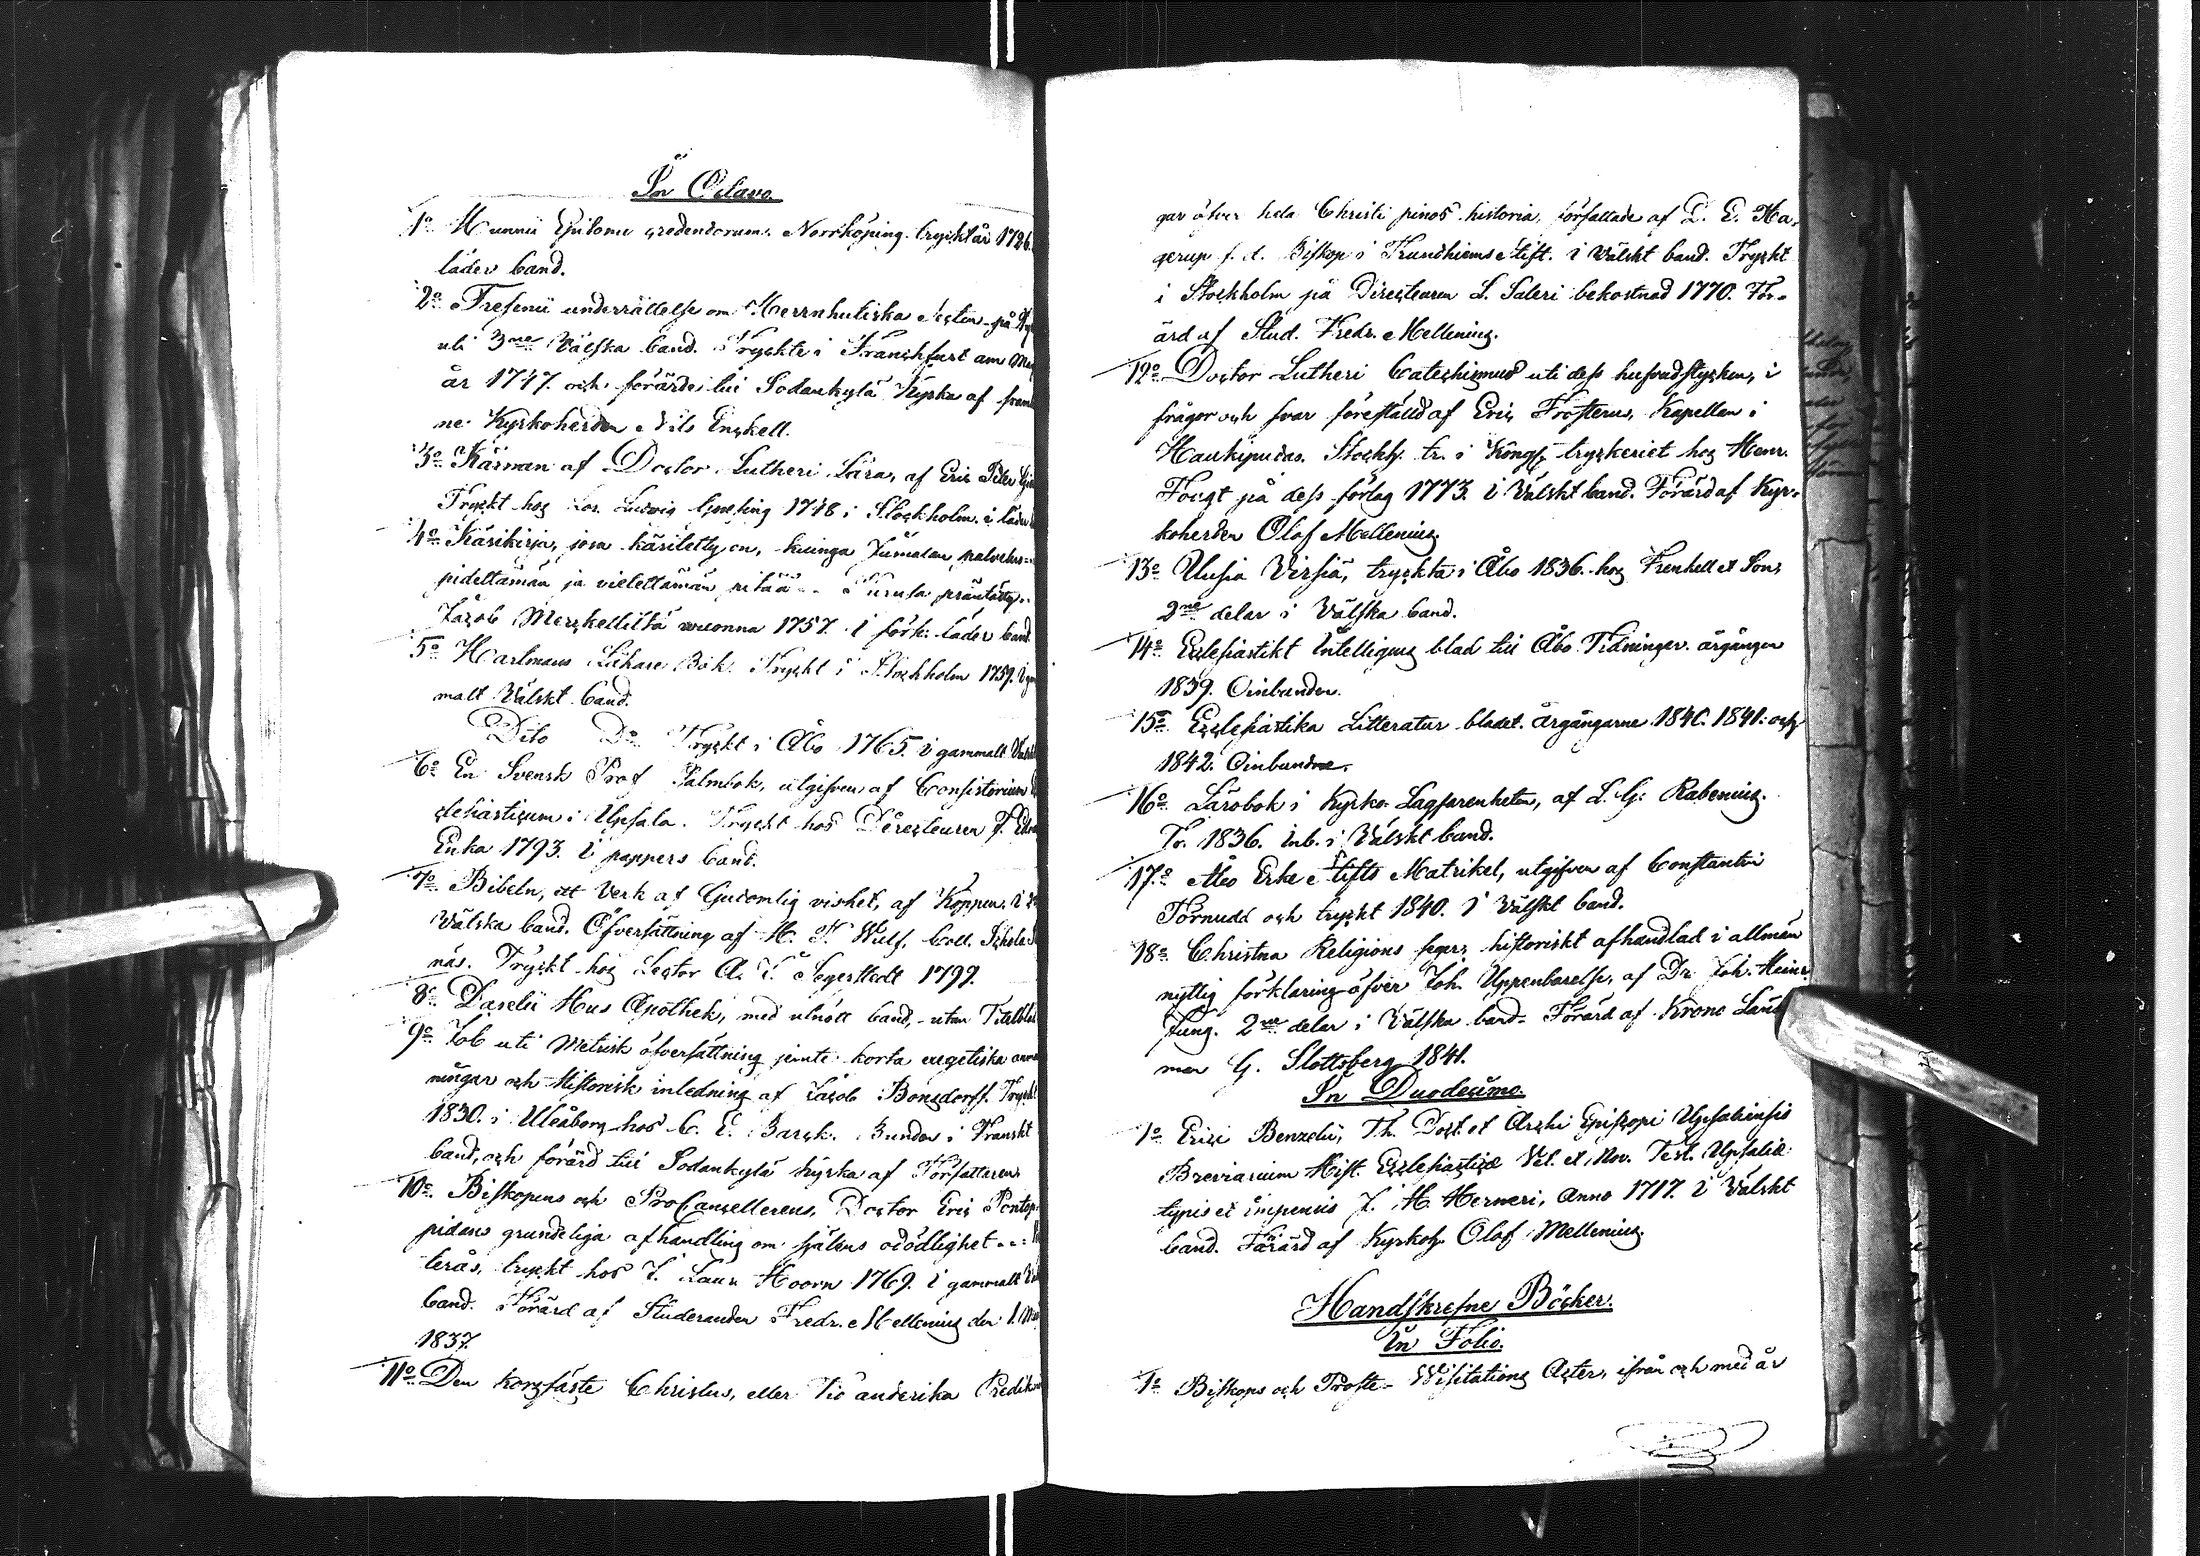 In Octavo.
1o Hunnii Epitome credendorum. Norrköping. tryckt år 1726.
läder band.
2o Fresenii underrättelse om Herrnhutiska Secten på
uti 3ne Välska band. Tryckte i Franckfurt am
år 1747. och förärde till Sodankylä Kyrka af
ne Kyrkoherden Nils Enckell.
3o Kärnan af Doctor Lutheri Lära, af Eric Peter
Tryckt hos Lor. Ludvig Grefing 1748 i Stockholm. i läder
4o Käsikirja, josa käsitetty on, kuinga Jumalan palvelus
pidettämän ja vietettämän pitää .. Turusa präntätty
Jacob Merckelliltä vuonna 1757. i förk: läder band.
5o Hartmans Läkare Bok. Tryckt i Stockholm 1759. i
malt Välskt band.
Dito Do Tryckt i Åbo 1765. i gammalt
6o En Svensk Prof Psalmbok, utgifven af Consistorium
clesiasticum i Upsala. Tryckt hos Directeuren J. Edm
Enka 1793. i pappers band.
7o Bibeln, ett Verk af Gudomlig vishet, af Köppen. i
Välska band. Öfversättning af H. F. Wulf, Coll. Schola
näs. Tryckt hos Lector A. J. Segerstedt 1797.
8o Daselii Hus Apothek, med utnött band, utan Titelblad
9o Job uti Metrisk öfversättning jemte korta exegetiska
ningar och Historisk inledning af Jacob Bonsdorff. Tryckt
1830. i Uleåborg hos C. E. Barck. Bunden i Franskt
band, och förärd till Sodankylä kyrka af Författaren
10o Biskopens och ProCancellerens, Doctor Eric Pontop
pidans grundeliga afhandling om själens odödlighet ...
terås, tryckt hos J. Laur. Hoorn 1769. i gammalt
band. Förärd af Studeranden Fredr. Mellenius den 1.
1837.
11o Den korsfäste Christus, eller Tio anderika Predik
gar öfver hela Christi pinos historia, författade af D. E. Ha-
gerup f. d. Biskop i Trundhiems Stift. i Välskt band. Tryckt
i Stockholm på Directeuren L. Salvi bekostnad 1770. För-
ärd af Stud. Fredr. Mellenius.
12o Doctor Lutheri Catechismus uti dess hufvudstycken, i
frågor och svar föreställd af Eric Frosterus, Kapellan i
Haukipudas. Stockh. tr. i Kongl. tryckeriet hos Henr.
Fougt på dess förlag 1773. i Välskt band. Förärd af Kyr-
koherden Olof Mellenius.
13o Uusia Virsiä, tryckta i Åbo 1836. hos Frenkell et Son,
2ne delar i Välska band.
14o Ecclesiastikt Intelligens blad till Åbo Tidningar. årgången
1839. Oinbunden.
15o Ecclesiastika Litteratur bladet. Årgångarne 1840. 1841. och
1842. Oinbundne.
16o Lärobok i Kyrko Lagfarenheten, af L. G. Rabenius.
Tr. 1836. inb. i Välskt band.
17o Åbo Erke Stifts Matrikel, utgifven af Constantin
Törnudd och tryckt 1840. i Välskt band.
18o Christna Religions seger, historiskt afhandlad i allmän
nyttig förklaring öfver Joh. Uppenbarelse, af Dr Joh. Heinr.
Jung. 2ne delar i Välska band. Förärd af Krono Länd
man G. Slottsberg 1841.
In Duodecimo.
1o Erici Benzelii, Th. Doct. et Archi Episcopi Upsaliensis
Breviarium Hist. Ecclesiasticæ Vet. et Nov. Test. Upsaliæ
typis et impensis J. H. Werneri, Anno 1717. i Välskt
band. Förärd af Kyrkoh. Olof Mellenius.
Handskrefne Böcker.
In Folio.
1o Biskops och Probste- Visitations Acter, ifrån och med år